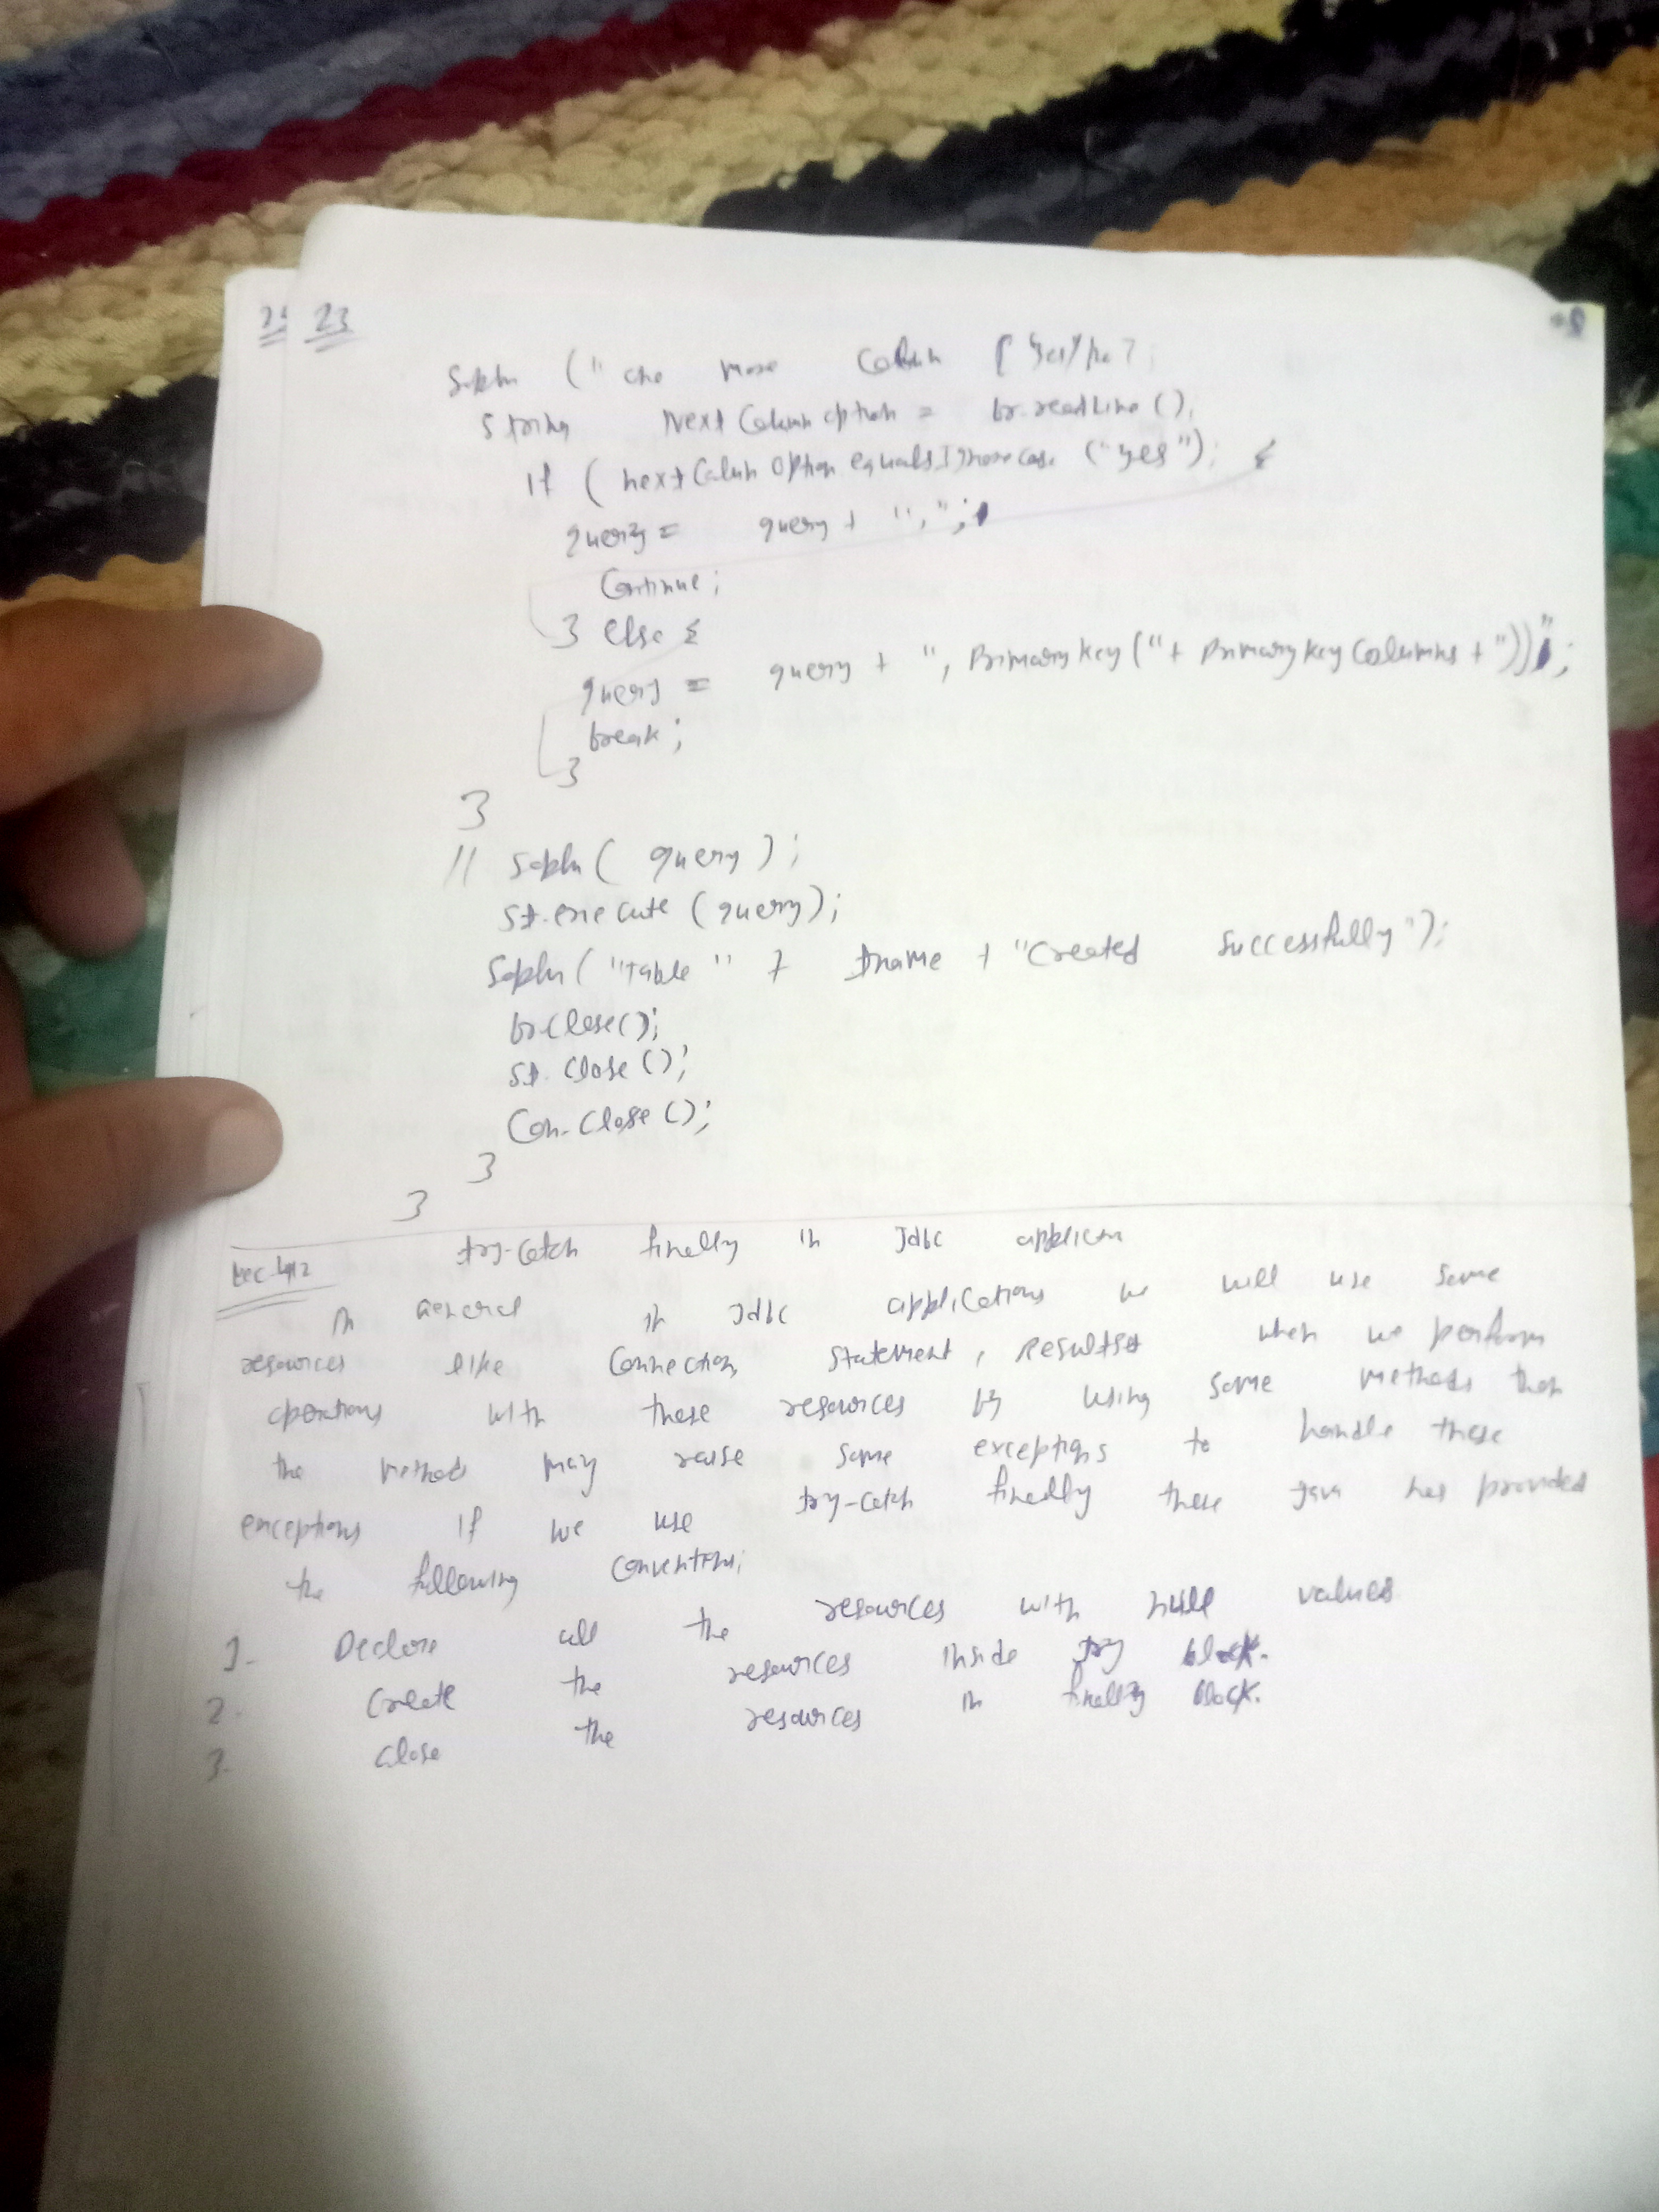 23
Sopln (" one more Column [ Yes/No ?
String Next Column option = br.readLine ();
If ( next Column Option equals Ignorecase ("yes"); {
query = query + ",";
Continue;
} else {
query = query + ", Primary key ("+ Primary key Columns + "))";
break;
}
}
// Sopln ( query );
St.execute (query);
Sopln ( "Table " + tname + "Created Successfully");
br.close();
St. Close ();
Con. Close ();
}
}
Lec-42 try-catch finally in Jdbc
In General in Jdbc applications we will use some
resources like Connection, Statement, Resultset when we perform
operations with these resources by using some methods then
the methods may raise some exceptions to handle these
exceptions if we use try-catch finally these Java has provided
the following Conventions;
1. Declare all the resources with null values
2. Create the resources inside try block.
3. Close the resources in finally block.